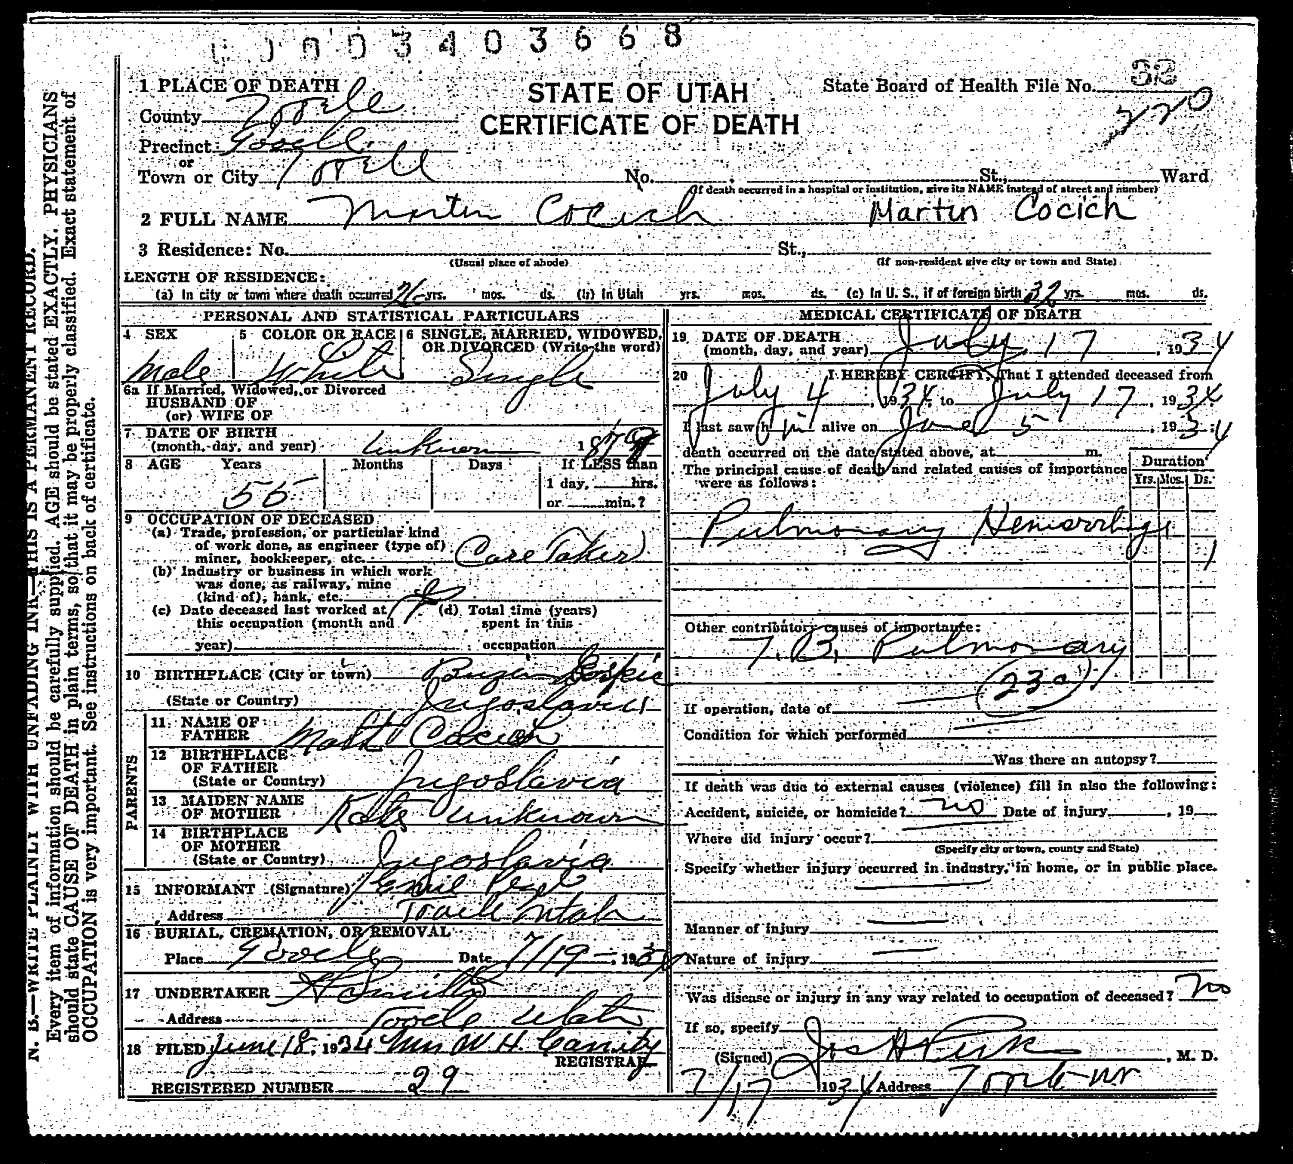 00003403668
1 PLACE OF DEATH
STATE OF UTAH
CERTIFICATE OF DEATH
State Board of Health File No. 32
220
County Tooele
Precinct Tooele
or
Town or City Tooele No. St., Ward
(If death occurred in a hospital or institution, give its NAME instead of street and number)
2 FULL NAME Martin Cocich Martin Cocich
3 Residence: No. St.,
(Usual place of abode) (If non-resident give city or town and State)
LENGTH OF RESIDENCE:
(a) In city or town where death occurred 21 yrs. mos. ds. (b) In Utah yrs. mos. ds. (c) In U. S., if of foreign birth 32 yrs. mos. ds.
PERSONAL AND STATISTICAL PARTICULARS
4 SEX 5 COLOR OR RACE 6 SINGLE, MARRIED, WIDOWED, OR DIVORCED (Write the word)
Male White Single
6a If Married, Widowed, or Divorced
HUSBAND OF
(or) WIFE OF
7 DATE OF BIRTH
(month, day, and year) Unknown 1879
8 AGE Years Months Days If LESS than
1 day, hrs.
55 or min.?
9 OCCUPATION OF DECEASED
(a) Trade, profession, or particular kind
of work done, as engineer (type of)
miner, bookkeeper, etc. Care Taker
(b) Industry or business in which work
was done, as railway, mine
(kind of), bank, etc.
(c) Date deceased last worked at (d) Total time (years)
this occupation (month and spent in this
year) occupation
10 BIRTHPLACE (City or town)
(State or Country) Jugoslavia
PARENTS
11 NAME OF
FATHER Matt Cocich
12 BIRTHPLACE
OF FATHER
(State or Country) Jugoslavia
13 MAIDEN NAME
OF MOTHER Kate Unknown
14 BIRTHPLACE
OF MOTHER
(State or Country) Jugoslavia
15 INFORMANT (Signature)
Address Tooele Utah
16 BURIAL, CREMATION, OR REMOVAL
Place Tooele Date 7/19 - 1934
17 UNDERTAKER
Address Tooele Utah
18 FILED June 18, 1934 Mrs W H Cassity
REGISTRAR
REGISTERED NUMBER 29
MEDICAL CERTIFICATE OF DEATH
19 DATE OF DEATH
(month, day, and year) July 17, 1934
20 I HEREBY CERTIFY, That I attended deceased from
July 4 1934, to July 17, 1934
I last saw him alive on June 5, 1934;
death occurred on the date stated above, at m.
The principal cause of death and related causes of importance
were as follows:
Duration
Yrs. Mos. Ds.
Pulmonary Hemorrhage 1
Other contributory causes of importance:
T. B. Pulmonary
(23a)
If operation, date of
Condition for which performed
Was there an autopsy?
If death was due to external causes (violence) fill in also the following:
Accident, suicide, or homicide? no Date of injury , 19
Where did injury occur?
(Specify city or town, county and State)
Specify whether injury occurred in industry, in home, or in public place.
Manner of injury
Nature of injury
Was disease or injury in any way related to occupation of deceased? No
If so, specify
(Signed) Jos H Peck, M. D.
7/17 1934 Address Tooele Ut
N. B.—WRITE PLAINLY WITH UNFADING INK—THIS IS A PERMANENT RECORD.
Every item of information should be carefully supplied. AGE should be stated EXACTLY. PHYSICIANS
should state CAUSE OF DEATH in plain terms, so that it may be properly classified. Exact statement of
OCCUPATION is very important. See instructions on back of certificate.